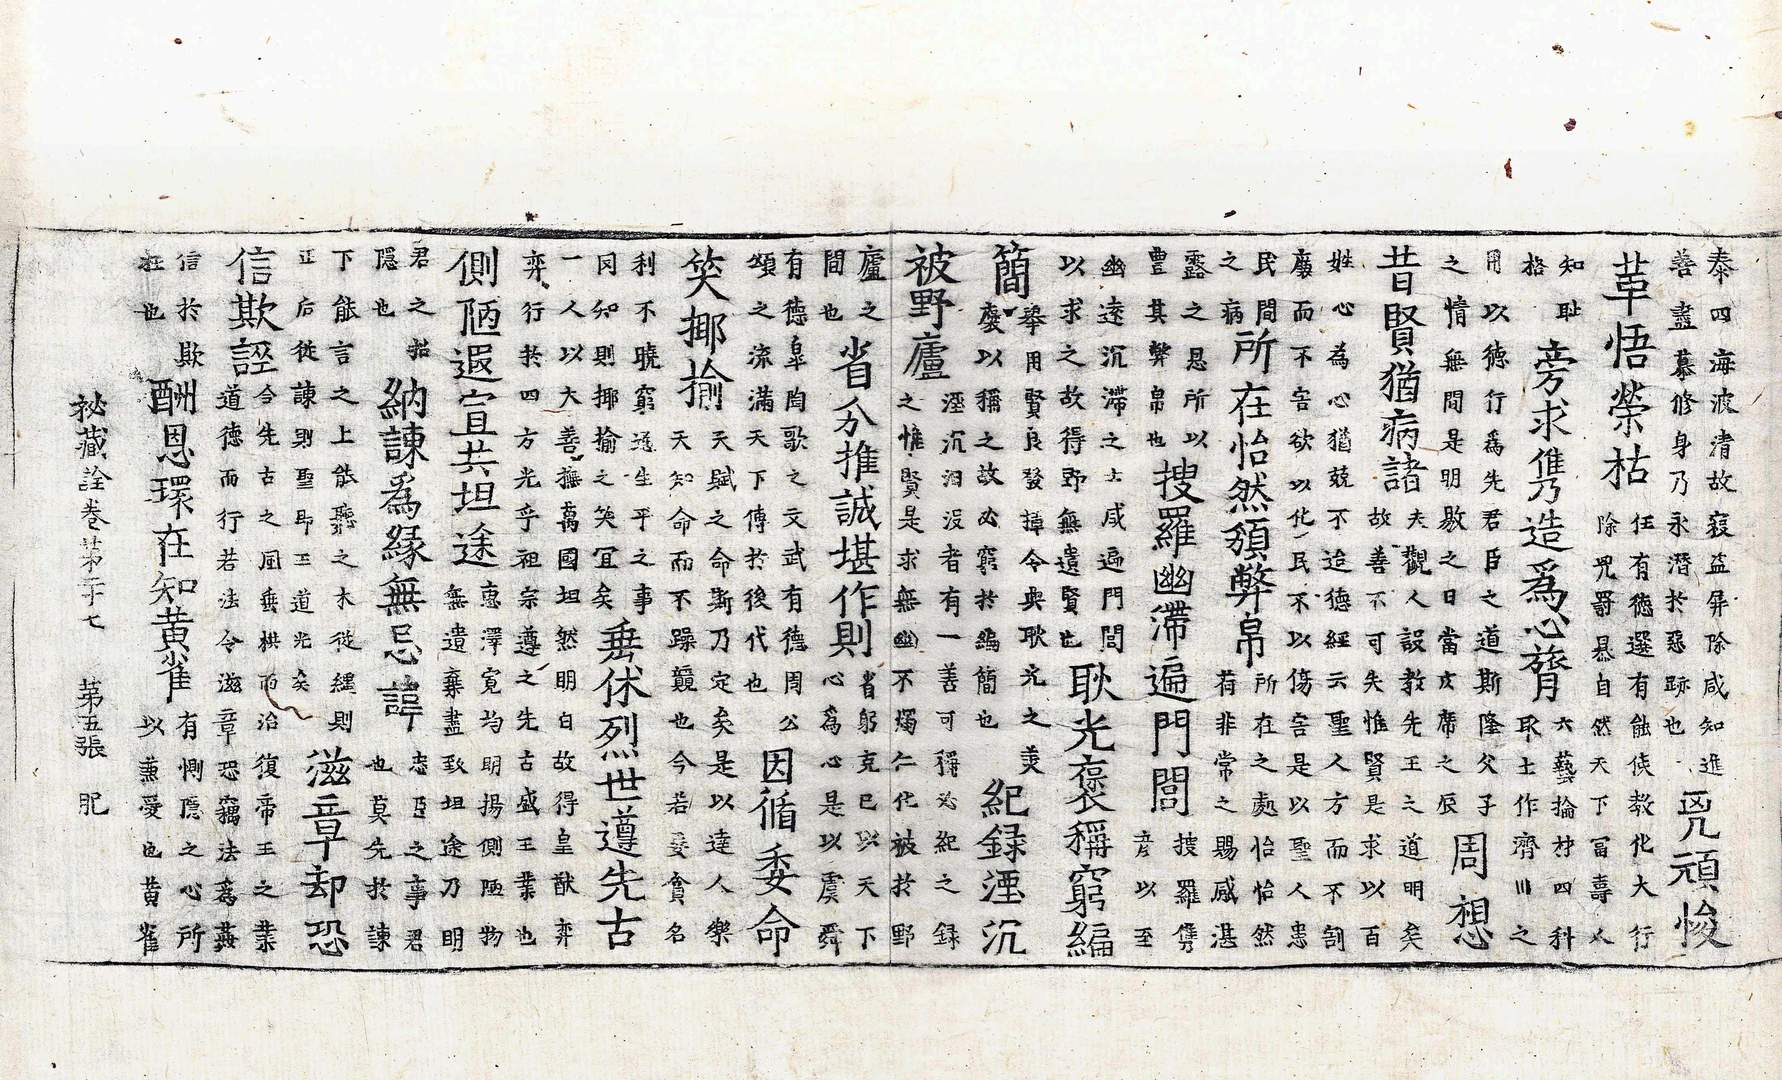 泰四海波清故寇盜屏除咸知進
善盡慕修身乃永潛於惡跡也
兇頑悛
革悟榮枯
任有德選有能使教化大行
除咒罰慕自然天下冨壽人
知耻
格
旁求儁造爲心膂
六藝掄材四科
取士作濟川之
用以德行爲先君臣之道斯隆父子
之情無間是明敭之日當攴席之辰
周想
昔賢猶病諸
夫觀人設教先王之道明矣
故善不可失惟賢是求以百
姓心為心猶兢不迨德經云聖人方而不割
廢而不害欲以化民不以傷害是以聖人患
民間
之病
所在怡然頒弊帛
所在之處怡怡然
荷非常之賜感湛
露之恩所以
豊其弊帛也
搜羅幽滯遍門閭
搜羅儁
彦以至
幽遠沉滯之士咸遍門閭
以求之故得野無遺賢也
耿光襃稱窮編
簡
舉用賢良發揮令典耿光之美
廢以稱之故必窮於編簡也
紀録湮沉
被野廬
湮沉汩没者有一善可稱必紀之録
之惟賢是求無幽不燭仁化被於野
廬之
間也
省分推誠堪作則
省躬克已以天下
心為心是以虞舜
有德皐陶歌之文武有德周公
頌之流滿天下傳於後代也
因循委命
笑揶揄
天賦之命斯乃定矣是以達人樂
天知命而不躁競也今若妄貪名
利不曉窮通生平之事
同知則揶揄之笑冝矣
垂休烈世遵先古
一人以大善撫萬國坦然明白故得皇猷弈
弈行於四方光乎祖宗遵之先古盛王業也
側陋遐宣共坦途
惠澤寛均明揚側陋物
無遺棄盡致坦途乃明
君之招
隱也
納諫爲縁無忌諱
忠臣之事君
也莫先於諫
下能言之上能聽之木從繩則
正后從諫則聖即王道光矣
滋章却恐
信欺誣
今先古之風垂栱而治復帝王之業
道德而行若法令滋章恐竊法爲燕
信於欺
枉也
酬恩環在知黄雀
有惻隱之心所
以蕙愛也黄雀
祕藏詮卷第二十七 第五張 肥